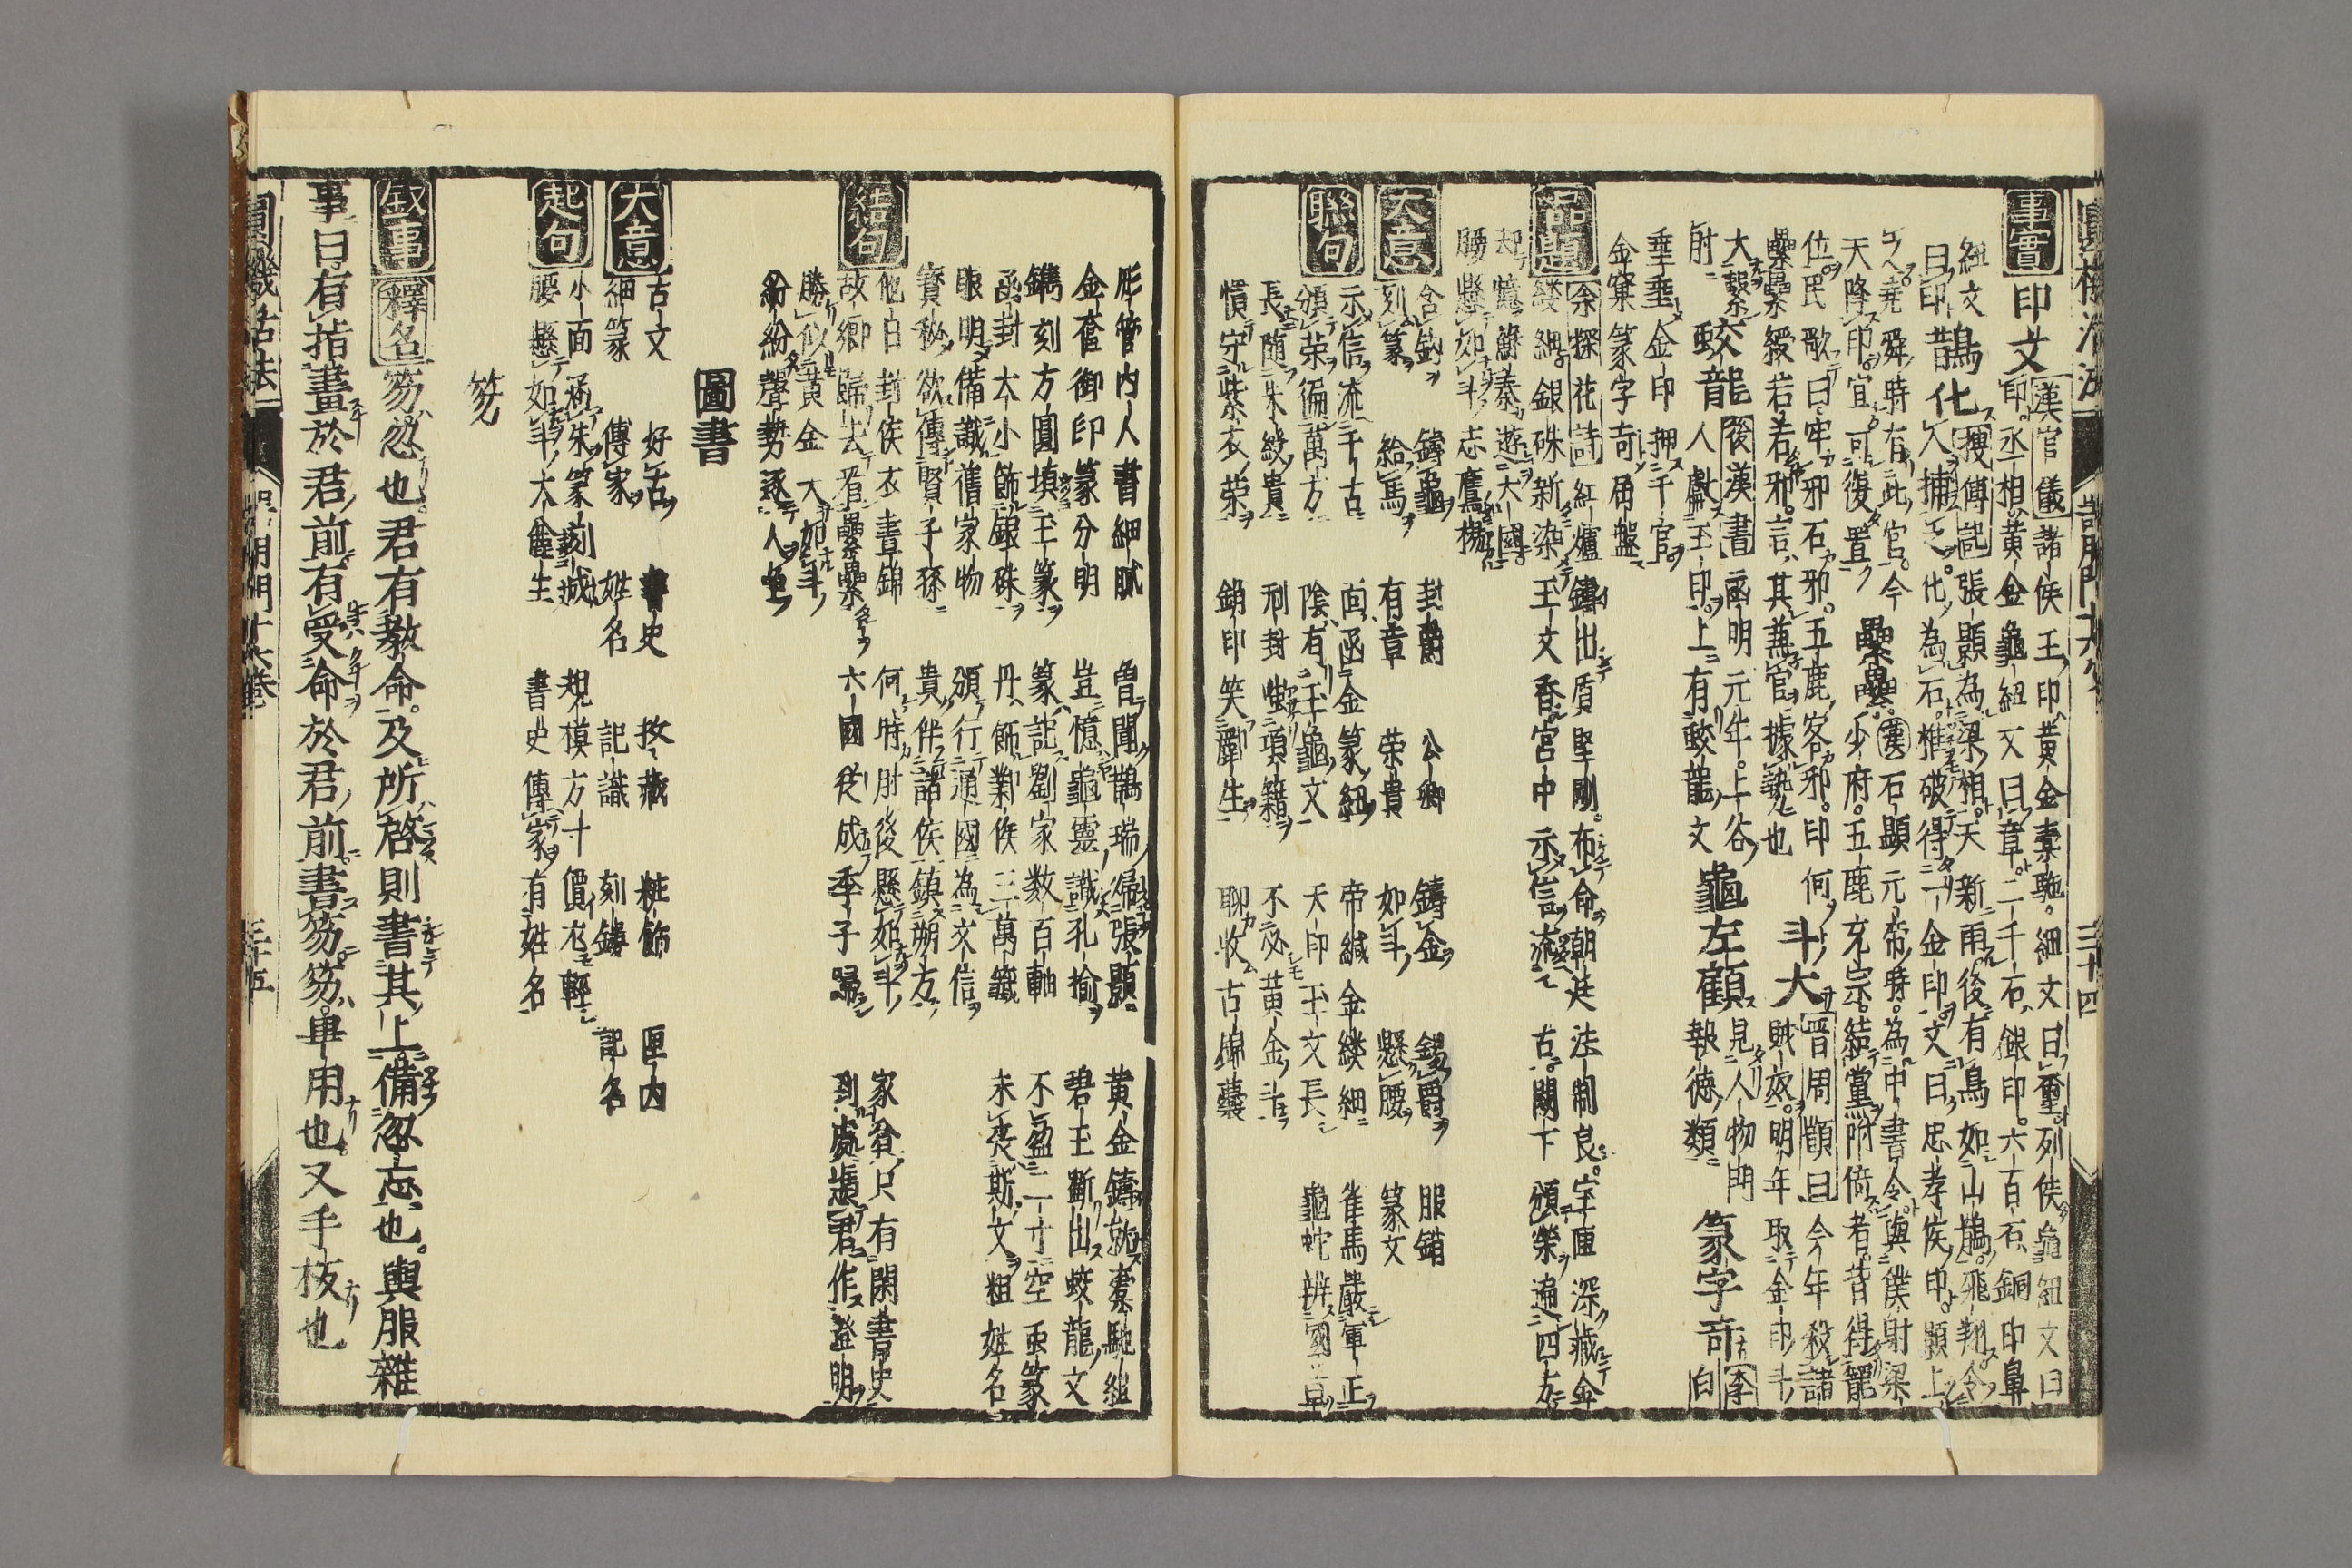 事實
印文
漢官儀諸侯王印黄金橐駞細文曰璽列侯龜紐文曰
印丞相黄金龜紐文曰章二千石銀印六百石銅印鼻
紐文
鵲化
搜傳記張顥為梁相天新雨後有鳥如山鵲飛翔令
人捕之化為石椎破得一金印文曰忠孝侯印顥上
之堯舜時有此官今
天降印宜可復置
纍纍
漢石顯元帝時為中書令與僕射梁
少府五鹿充宗結黨附倚者皆得寵
位民歌曰牢邪石邪五鹿客邪印何
纍纍綬若若邪言其兼官據勢也
斗大
晋周顗曰今年殺諸
賊奴明年取金印斗
大繫
肘
蛟龍
後漢書函明元年上谷
人獻玉印上有蛟龍文
龜左顧
見人物門
報德類
篆字奇
李
白
垂垂金印押千官
金窠篆字奇屈盤
品題
余探花詩
紅爐鑄出質堅剛 布命朝廷法制良 牢匣深藏金
縷細 銀硃新染玉文香 宮中示信流古 閫下頒榮遍四方
却憶蘇秦遊六國
腰懸如斗志鷹揚
大意
含鈎 鑄龜 封爵 公卿 鑄金 錫爵 服銷
刻篆 給馬 有章 榮貴 如斗 懸腰 篆文
聯句
示信流千古 面函金篆紐 帝緘金縷細 雀馬嚴軍正
頒榮徧萬方 陰有玉龜文 天印玉文長 龜蛇辨國章
長隨朱綬貴 刑封嗤項籍 不必黄金斗
慣守紫衣榮 銷印笑酈生 聊收古錦囊
彤管内人書細膩 曾聞鵲瑞歸張顥 黄金鑄就橐駞紐
金奩御印篆分明 豈憶龜靈識孔揄 碧玉斷出蛟龍文
鐫刻方圓填玉篆 篆記劉家数百軸 不盈二寸空玉篆
函封大小飾銀硃 丹飾鄴侯三萬籤 未喪斯文粗姓名
眼明備識舊家物 頒行通國為交信
寳秘欲傳賢子孫 貴伴諸侯鎮朔方
結句
他日封侯衣晝錦 何時肘後懸如斗 家貧只有閑書史
故鄉歸去看纍纍 六國從成季子歸 到處憑君作證明
勝似黄金大如斗
紛紛聲勢逐人
圖書
大意
古文 好古 書史 收藏 粧飾 匣内
細篆 傳家 姓名 記識 刻鑄 記名
起句
小面函朱篆刻成 規模方寸價尤輕
腰懸如斗大 書史傳家有姓名
笏
叙事
釋名笏忽也君有教命及所啓則書其上備忽忘也輿服雜
事曰有指畫於君前有受命於君前書笏笏畢用也又手板也